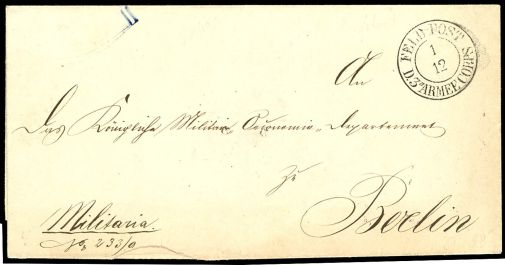 FELD-POST
1
12
D. 3n ARMEE CORPS
An
Das Königliche Militair Oeconomie-Departement
zu
Berlin
Militaria.
No. 233/a